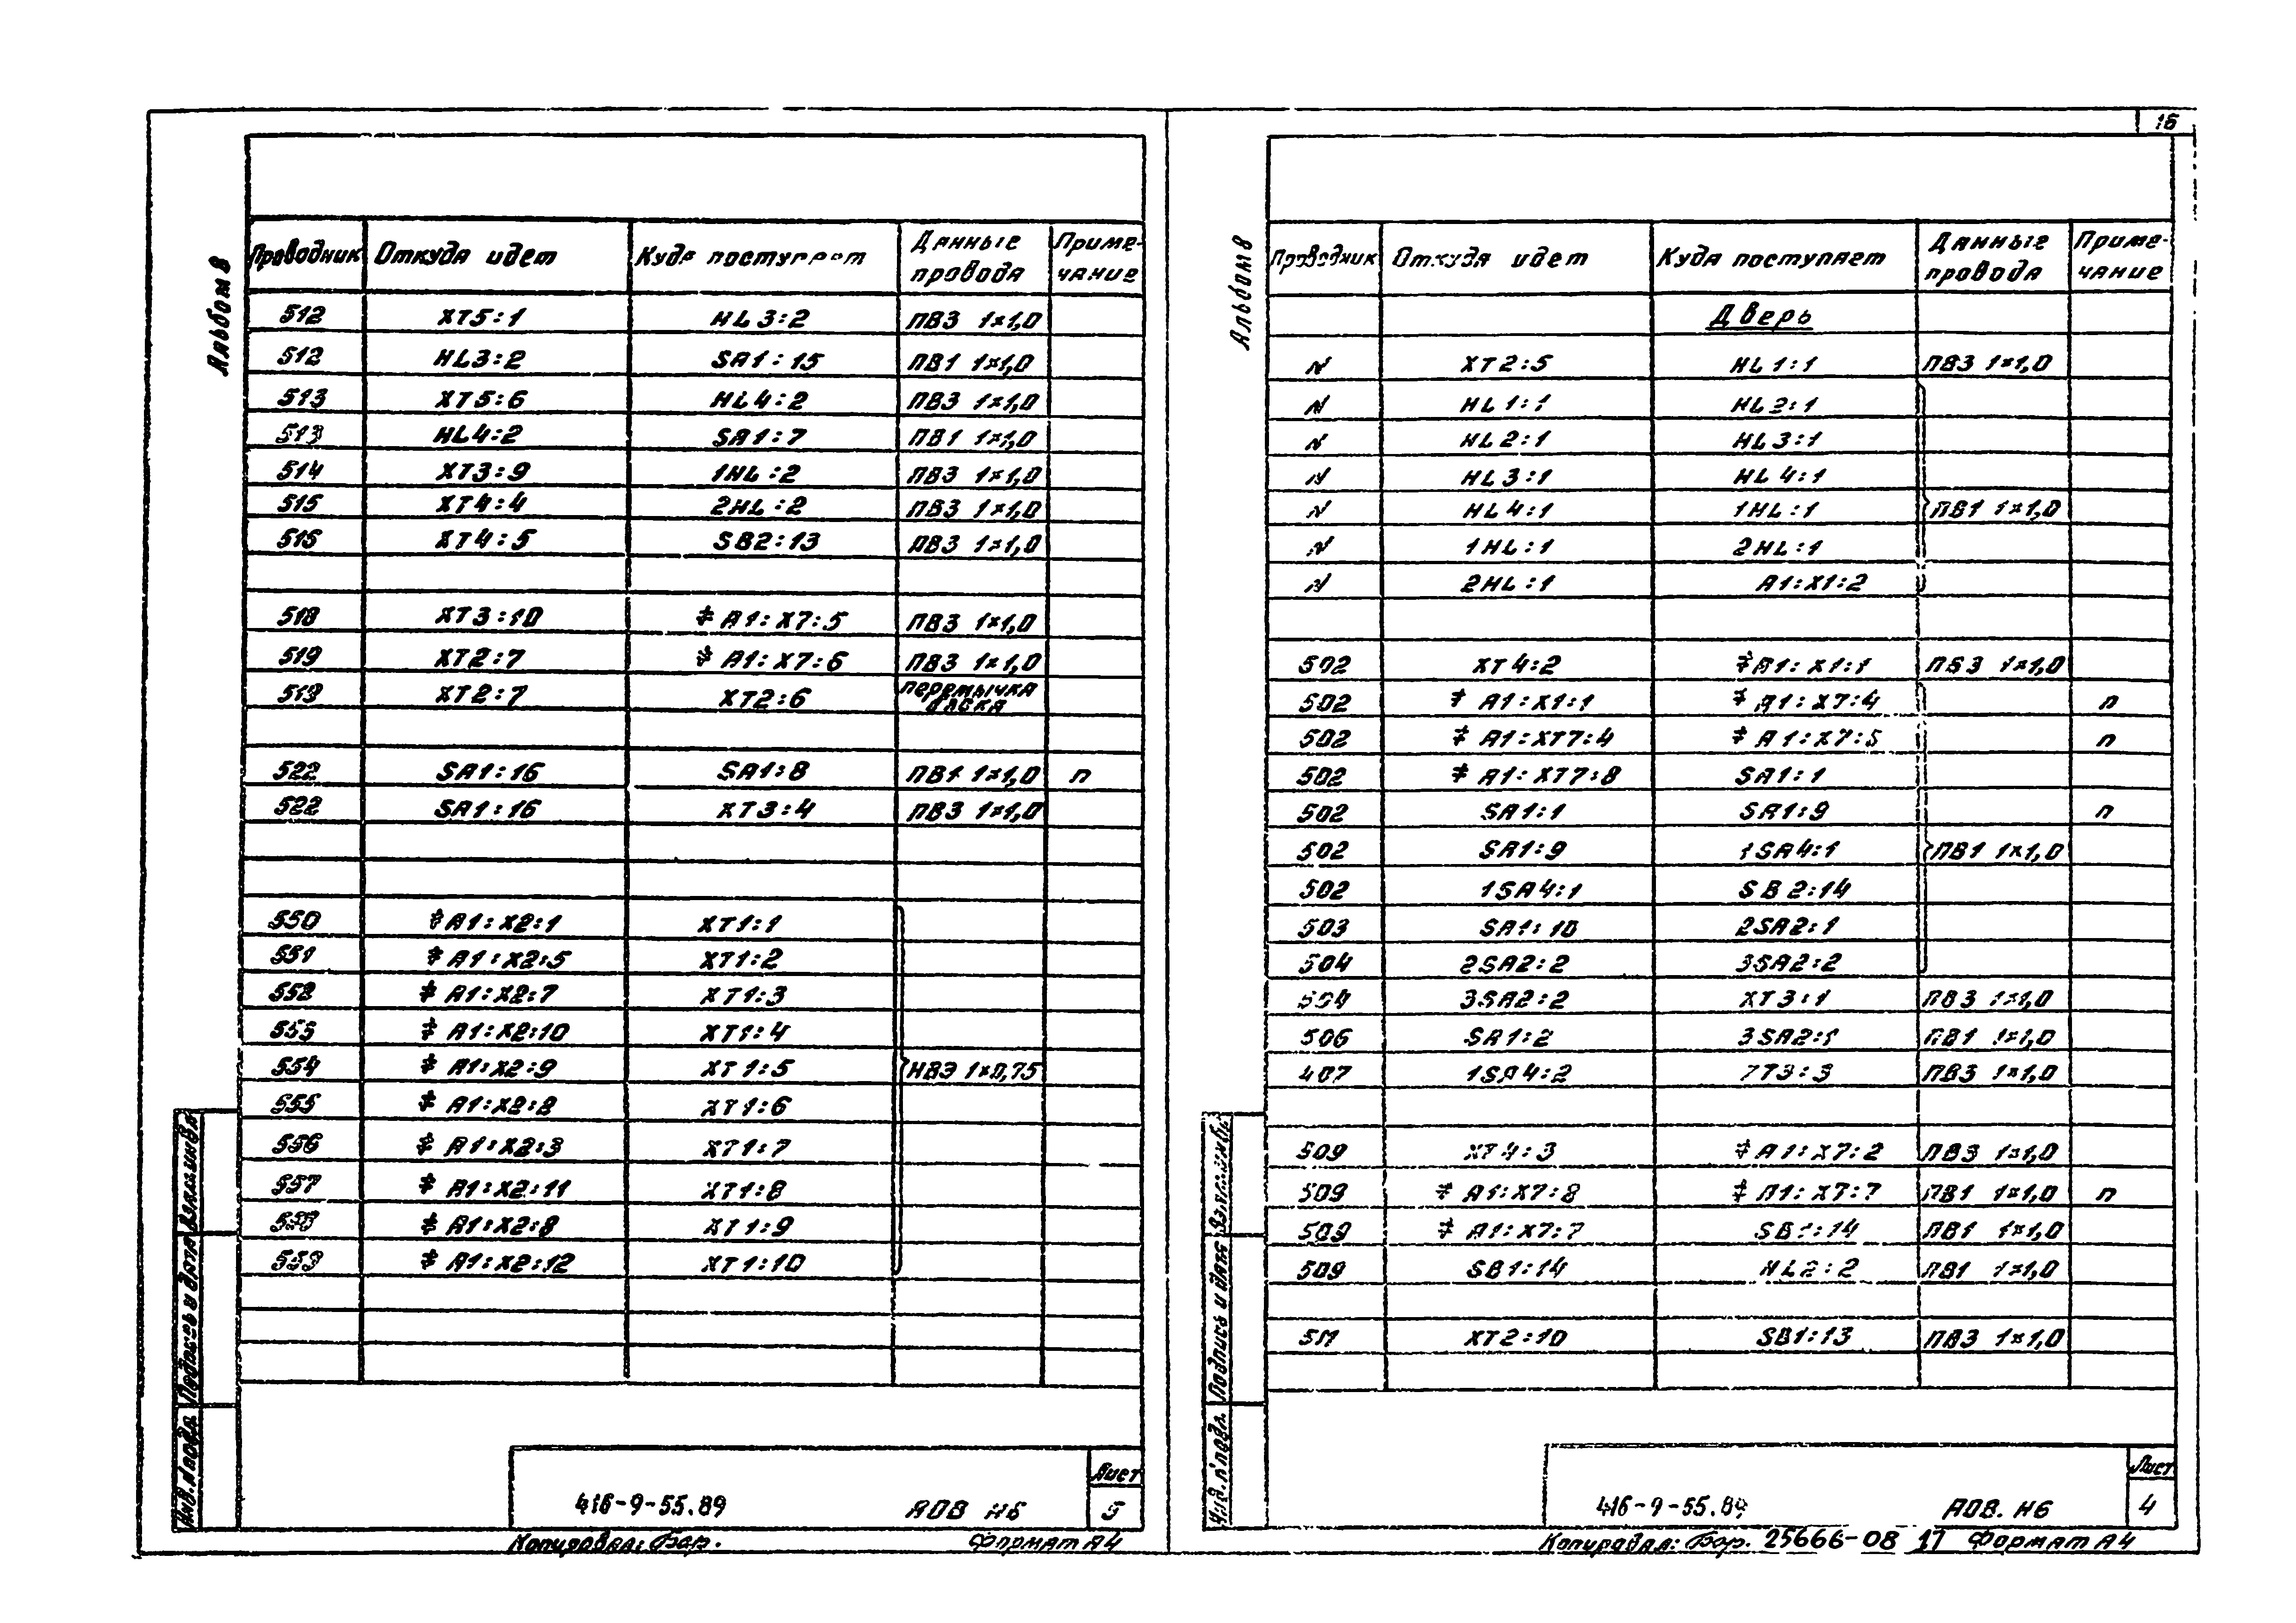 16
Альбом 8
Проводник Откуда идет Куда поступает Данные провода Приме-чание
512 XT5:1 HL3:2 ПВ3 1×1,0
512 HL3:2 SA1:15 ПВ1 1×1,0
513 XT5:6 HL4:2 ПВ3 1×1,0
513 HL4:2 SA1:7 ПВ1 1×1,0
514 XT3:9 1HL:2 ПВ3 1×1,0
515 XT4:4 2HL:2 ПВ3 1×1,0
516 XT4:5 SB2:13 ПВ3 1×1,0
518 XT3:10 ⌿ A1:X7:5 ПВ3 1×1,0
519 XT2:7 ⌿ A1:X7:6 ПВ3 1×1,0
519 XT2:7 XT2:6 перемычка блока
522 SA1:16 SA1:8 ПВ1 1×1,0 п
522 SA1:16 XT3:4 ПВ3 1×1,0
550 ⌿ A1:X2:1 XT1:1
551 ⌿ A1:X2:5 XT1:2
552 ⌿ A1:X2:7 XT1:3
553 ⌿ A1:X2:10 XT1:4
554 ⌿ A1:X2:9 XT1:5 НВЭ 1×0,75
555 ⌿ A1:X2:2 XT1:6
556 ⌿ A1:X2:3 XT1:7
557 ⌿ A1:X2:11 XT1:8
558 ⌿ A1:X2:8 XT1:9
559 ⌿ A1:X2:12 XT1:10
Инв.№подл. Подпись и дата Взам.инв.№
416-9-55.89 АОВ Н6
Лист
5
Копировал: Бор. Формат А4
Альбом 8
Проводник Откуда идет Куда поступает Данные провода Приме-чание
Дверь
N XT2:5 HL1:1 ПВ3 1×1,0
N HL1:1 HL2:1
N HL2:1 HL3:1
N HL3:1 HL4:1
N HL4:1 1HL:1 ПВ1 1×1,0
N 1HL:1 2HL:1
N 2HL:1 A1:X1:2
502 XT4:2 ⌿ A1:X1:1 ПВ3 1×1,0
502 ⌿ A1:X1:1 ⌿ A1:X7:4 п
502 ⌿ A1:XT7:4 ⌿ A1:X7:5 п
502 ⌿ A1:XT7:8 SA1:1
502 SA1:1 SA1:9 п
502 SA1:9 1SA4:1 ПВ1 1×1,0
502 1SA4:1 SB2:14
503 SA1:10 2SA2:1
504 2SA2:2 3SA2:2
504 3SA2:2 XT3:1 ПВ3 1×1,0
506 SA1:2 3SA2:1 ПВ1 1×1,0
407 1SA4:2 7T3:3 ПВ3 1×1,0
509 XT4:3 ⌿ A1:X7:2 ПВ3 1×1,0
509 ⌿ A1:X7:8 ⌿ A1:X7:7 ПВ1 1×1,0 п
509 ⌿ A1:X7:7 SB1:14 ПВ1 1×1,0
509 SB1:14 HL2:2 ПВ1 1×1,0
511 XT2:10 SB1:13 ПВ3 1×1,0
Инв.№подл. Подпись и дата Взам.инв.№
416-9-55.89 АОВ. Н6
Лист
4
Копировал: Бор. 25666-08 17 Формат А4